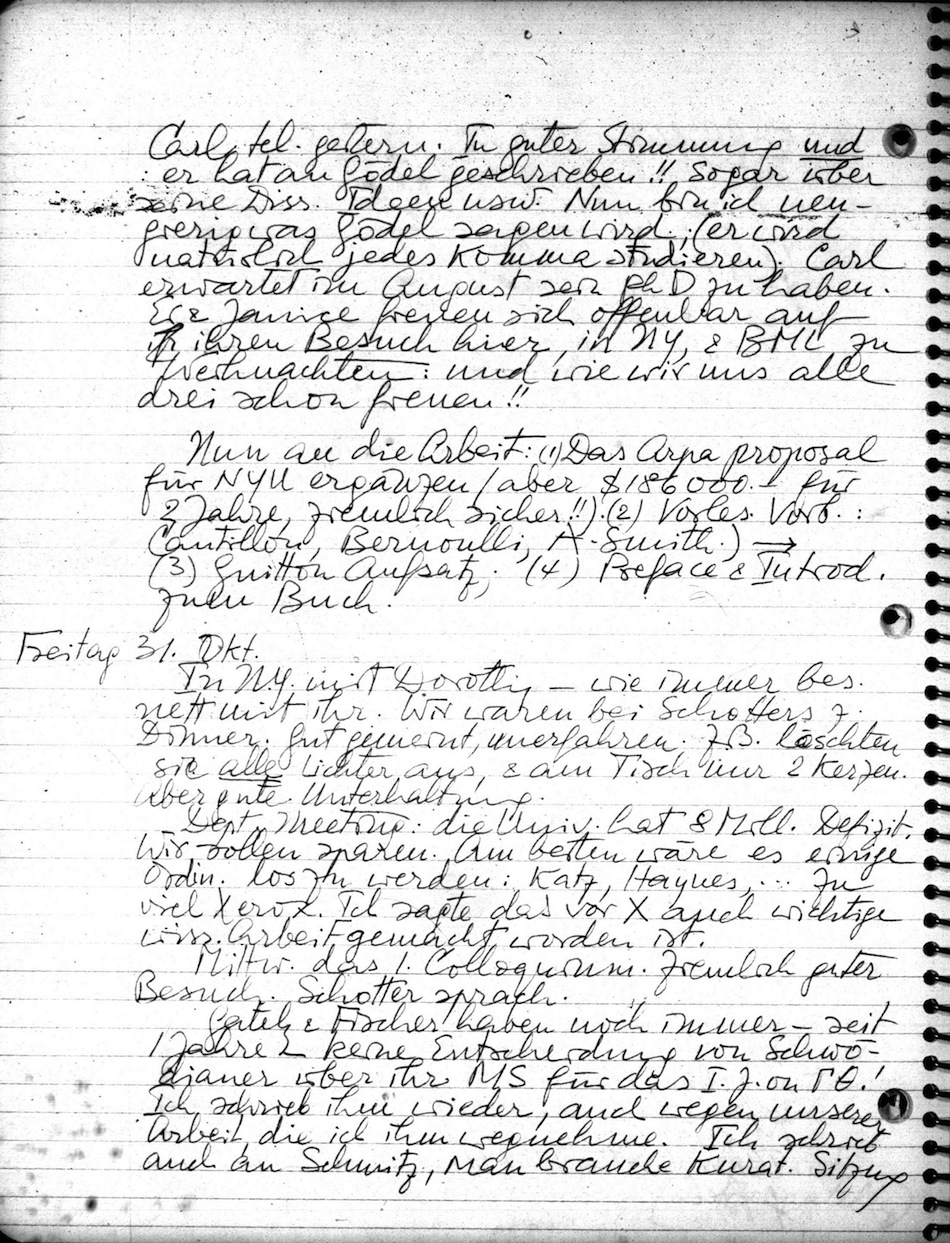 Carl tel. gestern. In guter Stimmung und
er hat an Gödel geschrieben!! Sogar über
seine Diss. Ideen usw. Nun bin ich neu-
gierig was Gödel sagen wird, (er wird
natürlich jedes Komma studieren). Carl
erwartet im August sein PhD zu haben.
Er & Janice freuen sich offenbar auf
ihren Besuch hier, in NY, & BML zu
Weihnachten: und wie wir uns alle
drei schon freuen!!
Nun an die Arbeit: (1) Das Arpa proposal
für NYU ergänzen (aber $186 000.– für
2 Jahre, ziemlich sicher!!). (2) Vorles. Vorb.:
Cantillon, Bernoulli, A. Smith.) →
(3) Guitton Aufsatz; (4) Preface & Introd.
zum Buch.
Freitag 31. Okt.
In NY mit Dorothy – wie immer bes.
nett mit ihr. Wir waren bei Schotters z.
Dinner. Gut gemeint, unerfahren. Z.B. löschten
sie alle Lichter aus, & am Tisch nur 2 Kerzen.
Aber gute Unterhaltung.
Dept. Meeting: die Univ. hat 8 Mill. Defizit.
Wir sollen sparen. Am besten wäre es einige
Ordin. los zu werden: Katz, Haynes, ... Zu
viel Xerox. Ich sagte das vor X auch wichtige
wiss. Arbeit gemacht worden ist.
Mittw. das 1. Colloquium. Ziemlich guter
Besuch. Schotter sprach.
& Fischer haben noch immer – seit
1 Jahre keine Entscheidung von Schwö-
diauer über ihr MS für das I. J. on ΓΘ.!
Ich schrieb ihm wieder, auch wegen unserer
Arbeit, die ich ihm wegnehme. Ich schrieb
auch an Schmitz, man brauche Kurat. Sitzung